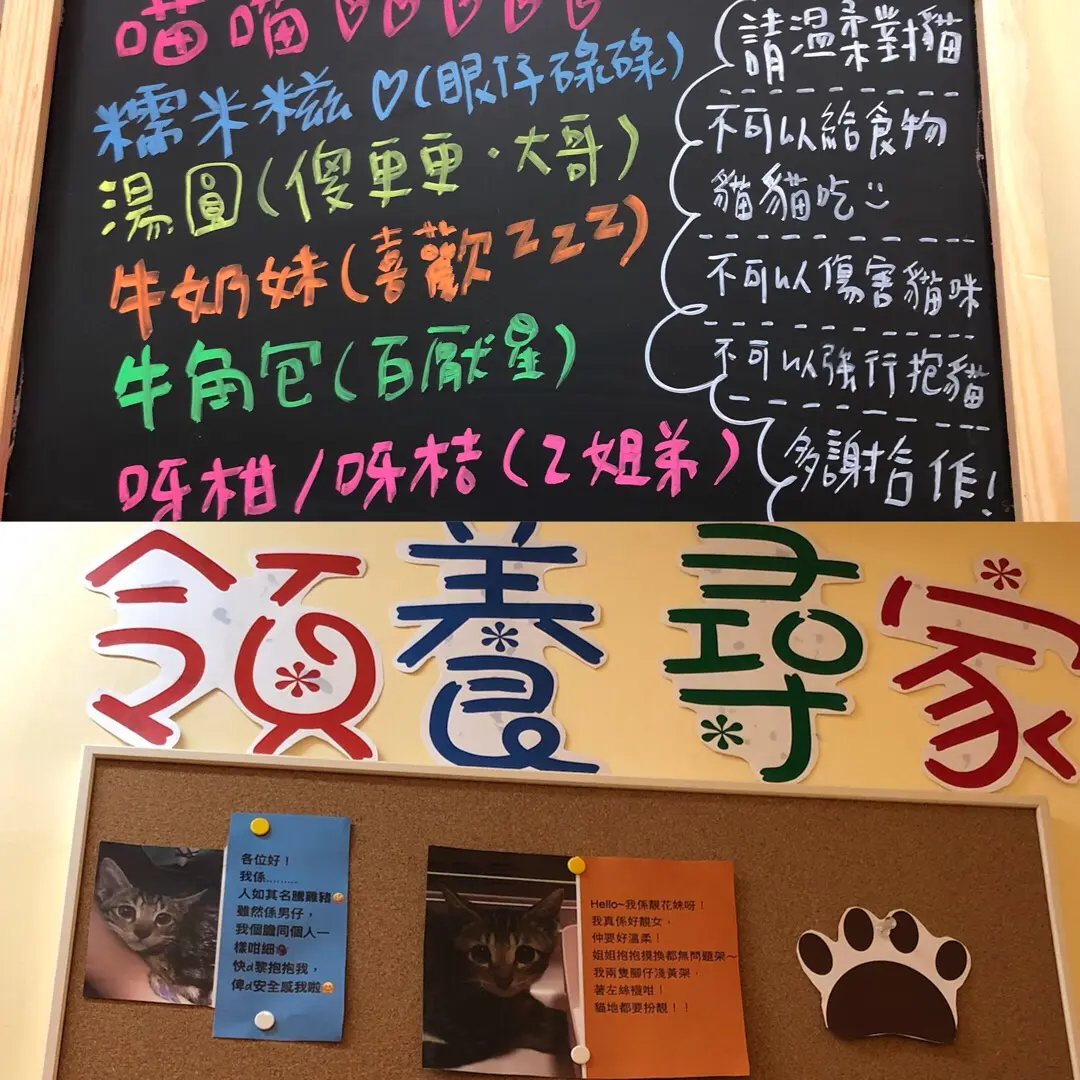 喵喵
糯米糍♡(眼仔碌碌)
湯圓(傻更更·大哥)
牛奶妹(喜歡zzz)
牛角包(百厭星)
呀柑/呀桔(2姐弟)
請溫柔對貓
不可以給食物
貓貓吃
不可以傷害貓咪
不可以強行抱貓
多謝合作!
領養尋家
各位好！
我係.........
人如其名騰雞豬
雖然係男仔，
我個膽同個人一
樣咁細
快d黎抱抱我，
俾d安全感我啦
Hello~我係靚花妹呀！
我真係好靚女，
仲要好溫柔！
姐姐抱抱摸換都無問題架~
我兩隻腳仔淺黃架，
著左絲襪咁！
貓地都要扮靚！！